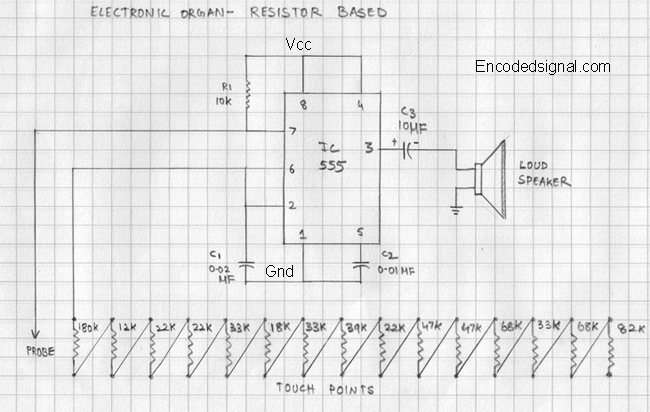 ELECTRONIC ORGAN- RESISTOR BASED
Vcc
Encodedsignal.com
R1
10K
8
4
C3
10MF
+
-
7
IC
555
3
6
LOUD
SPEAKER
2
1
5
C1
0.02
MF
Gnd
C2
0.01MF
180K 12K 22K 22K 33K 18K 33K 39K 22K 47K 47K 68K 33K 68K 82K
PROBE
TOUCH POINTS